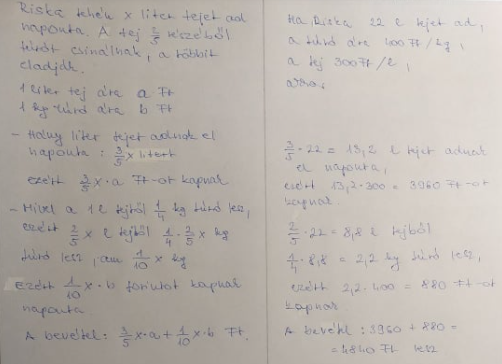 Riska tehén x liter tejet ad
naponta. A tej 2/5 részéből
túrót csinálnak, a többit
eladják.
1 liter tej ára a Ft
1 kg túró ára b Ft
- Hány liter tejet adnak el
naponta: 3/5 x litert
ezért 3/5 x·a Ft-ot kapnak
- Mivel a 1 l tejből 1/4 kg túró lesz,
ezért 2/5 x l tejből 1/4 · 2/5 x kg
túró lesz, ami 1/10 x kg
ezért 1/10 x·b forintot kapnak
naponta.
A bevétel: 3/5 x·a + 1/10 x·b Ft.
Ha Riska 22 l tejet ad,
a túró ára 400 Ft/kg,
a tej 300 Ft/l,
akkor
3/5 · 22 = 13,2 l tejet adnak
el naponta,
ezért 13,2·300 = 3960 Ft-ot
kapnak.
2/5 · 22 = 8,8 l tejből
1/4 · 8,8 = 2,2 kg túró lesz,
ezért 2,2·400 = 880 Ft-ot
kapnak
A bevétel: 3960 + 880 =
= 4840 Ft lesz